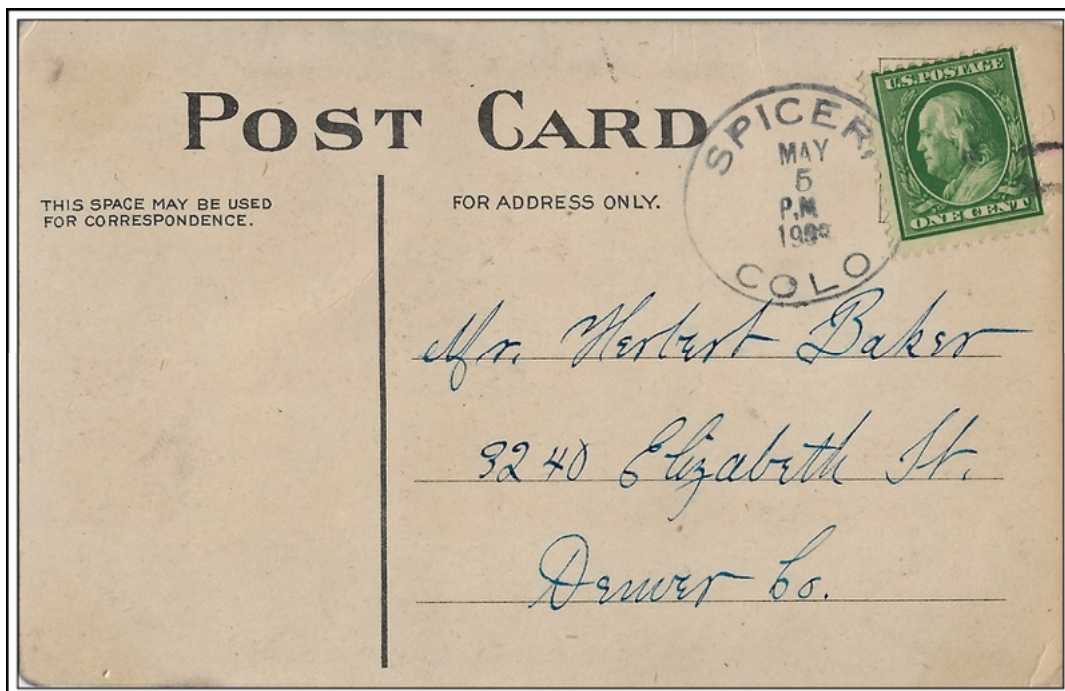 POST CARD
THIS SPACE MAY BE USED
FOR CORRESPONDENCE.
FOR ADDRESS ONLY.
SPICER,
MAY
5
P.M
COLO
U.S. POSTAGE
ONE CENT
Mr. Herbert Baker
3240 Elizabeth St.
Denver Co.